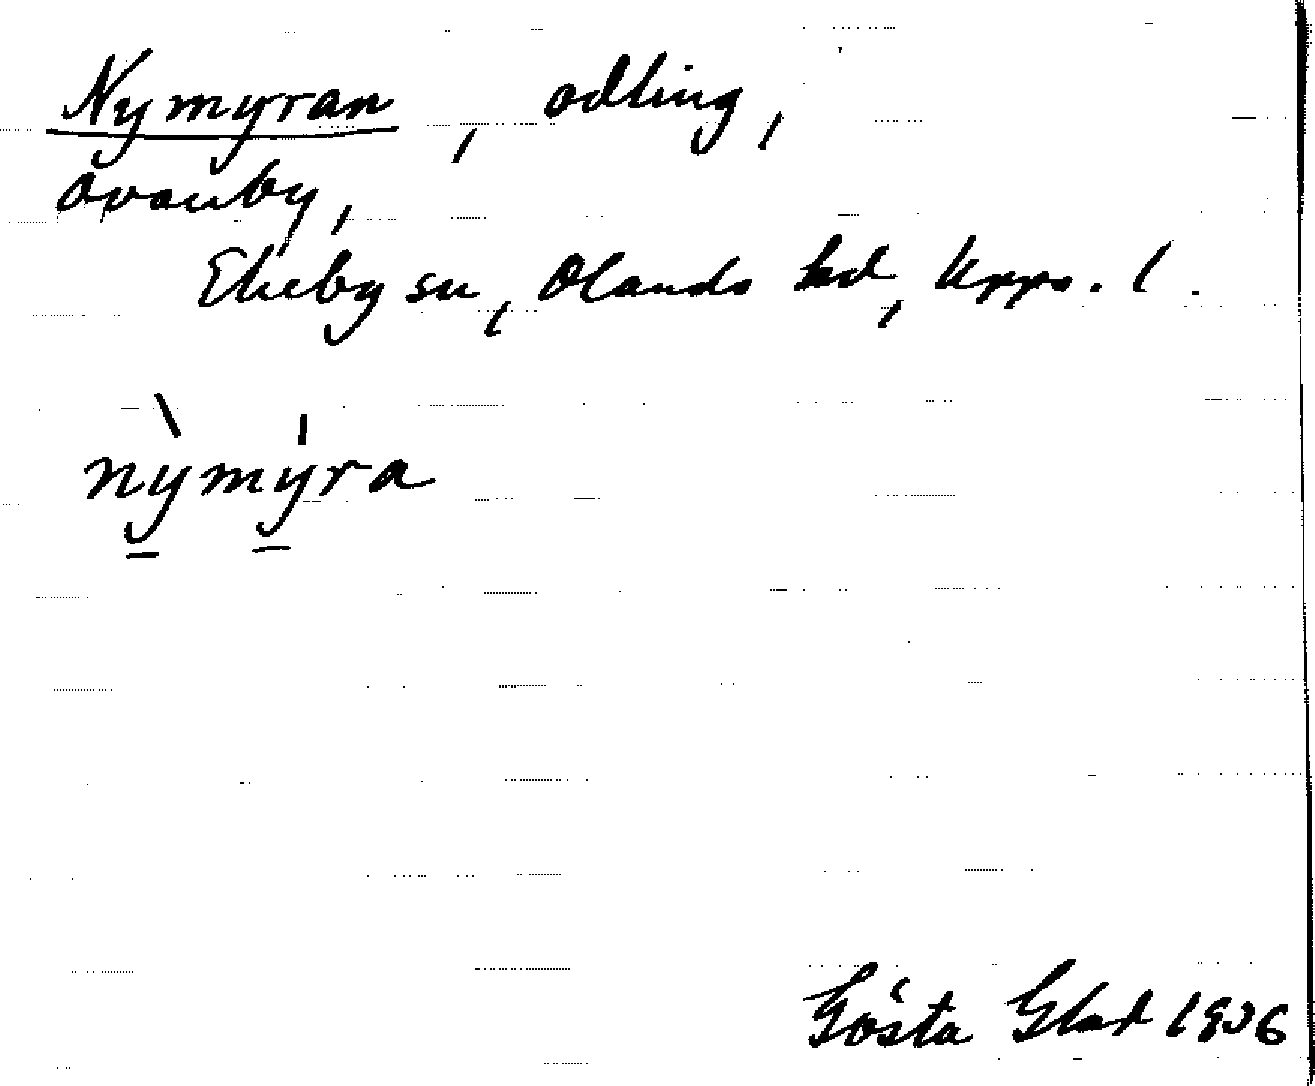 Nymyran, odling,
Ovanby,
Ekeby sn, Olands hd, Upps. l.
nỳmýra
Gösta Glad 1936